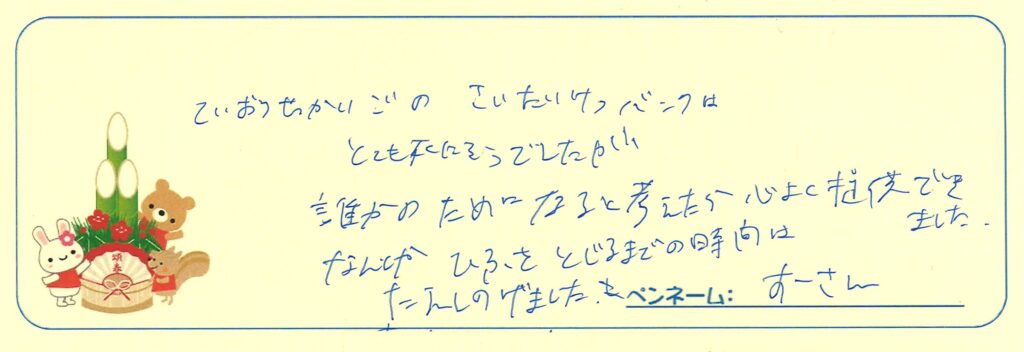 ていおうせっかいごの さいたいけつバンクは
とても死にそうでしたが、
誰かのために なると考えたら 心よく提供でき
ました.
なんか ひふを とじるまでの時間は
たえしのげました.
ペンネーム: すーさん
頌春